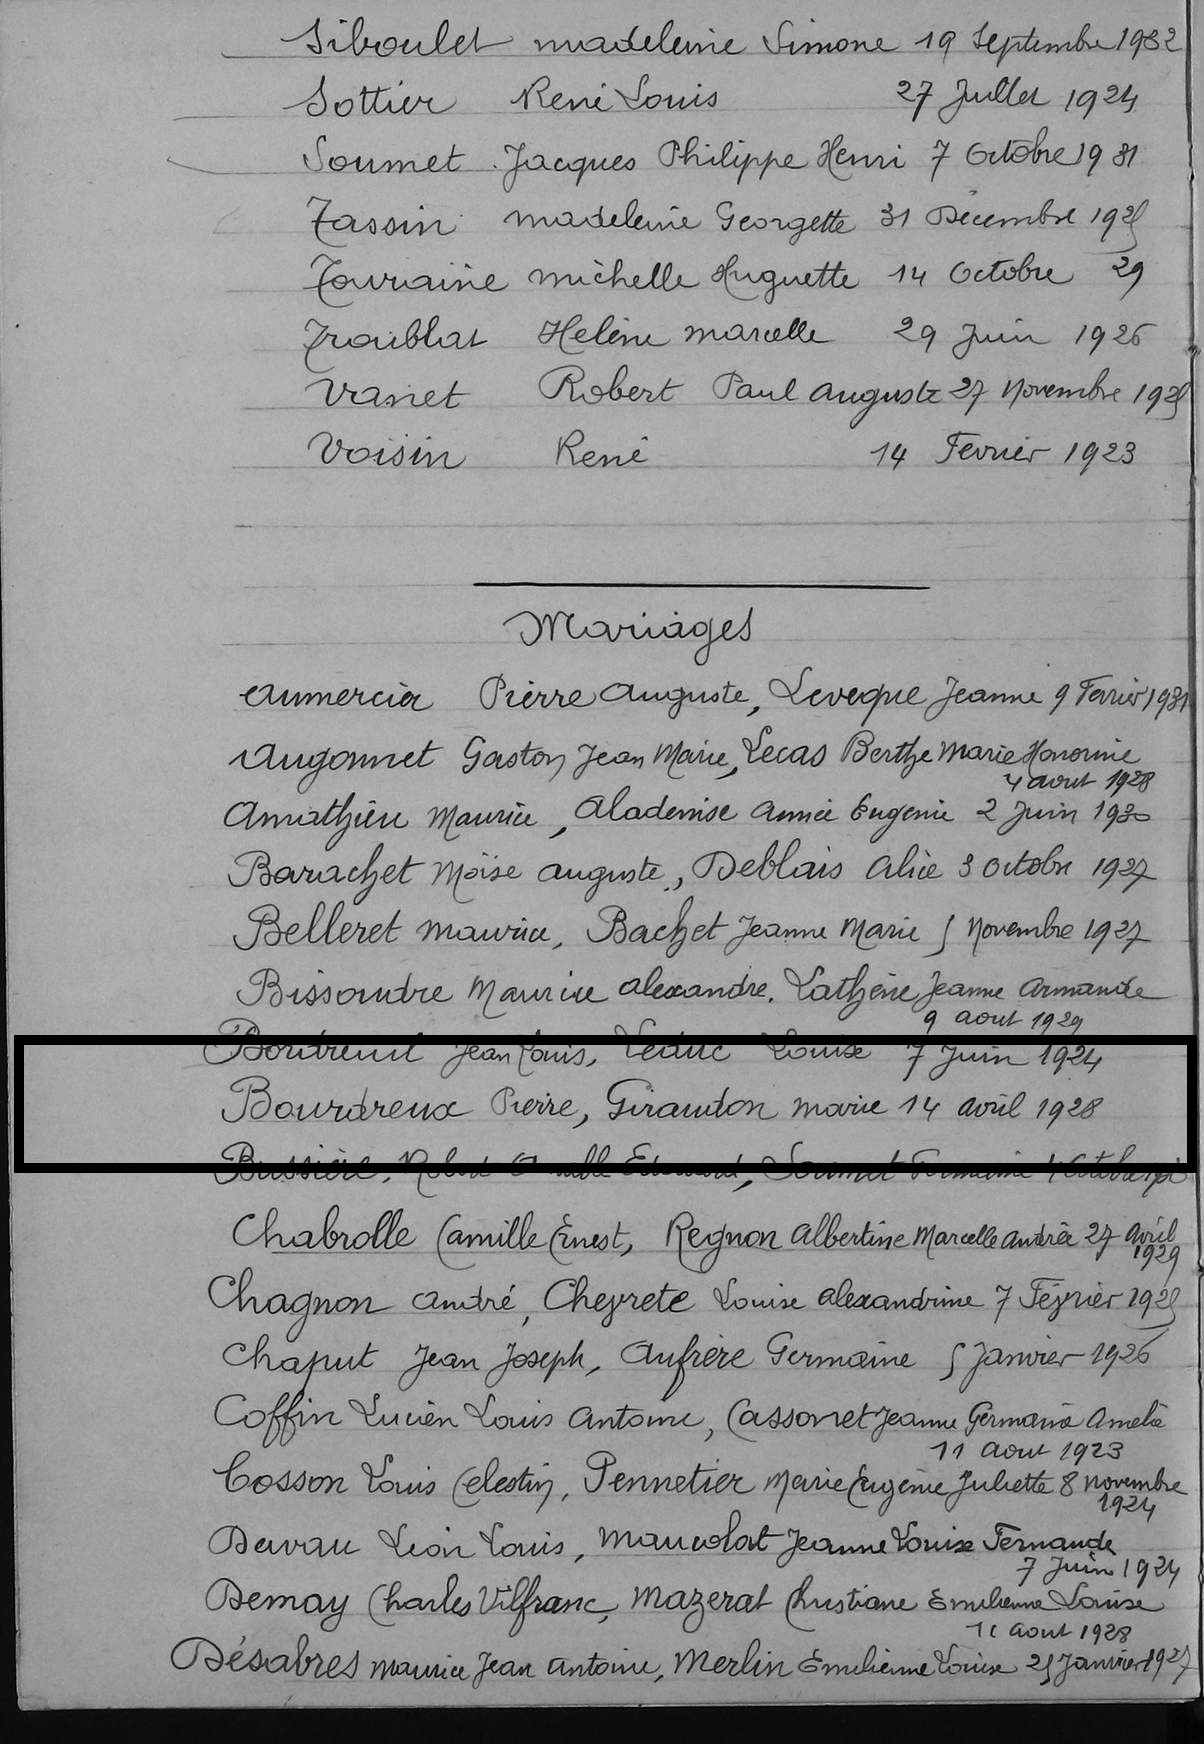 Siboulet madeleine Simone 19 Septembre 1932
Sottier René Louis 27 Juillet 1924
Soumet Jacques Philippe Henri 7 Octobre 1931
Tassin madeleine Georgette 31 Décembre 1925
Touraine michelle Huguette 14 Octobre 29
Troublat Helène marcelle 29 Juin 1926
Vanet Robert Paul auguste 27 Novembre 1925
Voisin René 14 Fevrier 1923
Mariages
aumercier Pierre auguste, Leveque Jeanne 9 Fevrier 1931
Augonnet Gaston Jean Marie, Lecas Berthe Marie Honorine
4 aout 1928
Amathieu Maurice, Aladenise année Eugenie 2 Juin 1930
Barachet Moïse auguste, Deblais alice 3 octobre 1927
Belleret maurice, Bachet Jeanne Marie 5 Novembre 1927
Bissoudre Maurice alexandre. Lathène Jeanne armande
9 aout 1929
Jean Louis, Leduc Louise 7 Juin 1924
Bourdreux Pierre, Giraudon marie 14 avril 1928
Bussière, Soumet
Chabrolle Camille Ernest, Regnon Albertine Marcelle andrée 27 avril
1929
Chagnon andré, Cheyrete Louise alexandrine 7 Février 1925
Chaput Jean Joseph, Aufrère Germaine 5 Janvier 1926
Coffin Lucien Louis Antoine, Cassonet Jeanne Germaine Amelie
11 aout 1923
Cosson Louis Celestin, Pennetier Marie Eugenie Juliette 8 novembre
1924
Devau Léon Louis, maucolat Jeanne Louise Fernande
7 Juin 1924
Demay Charles Vilfranc, Mazerat Christiane Emilienne Louise
11 aout 1928
Désabres maurice Jean antoine, Merlin Emilienne Louise 25 Janvier 1927